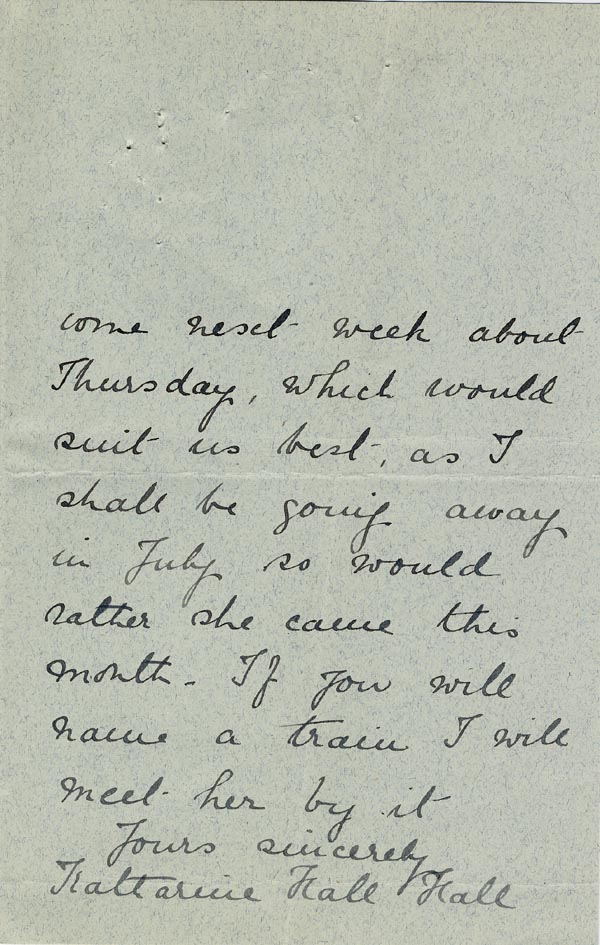 come next week about
Thursday, which would
suit us best, as I
shall be going away
in July so would
rather she came this
month - If you will
name a train I will
meet her by it
Yours sincerely
Katharine Hall Hall